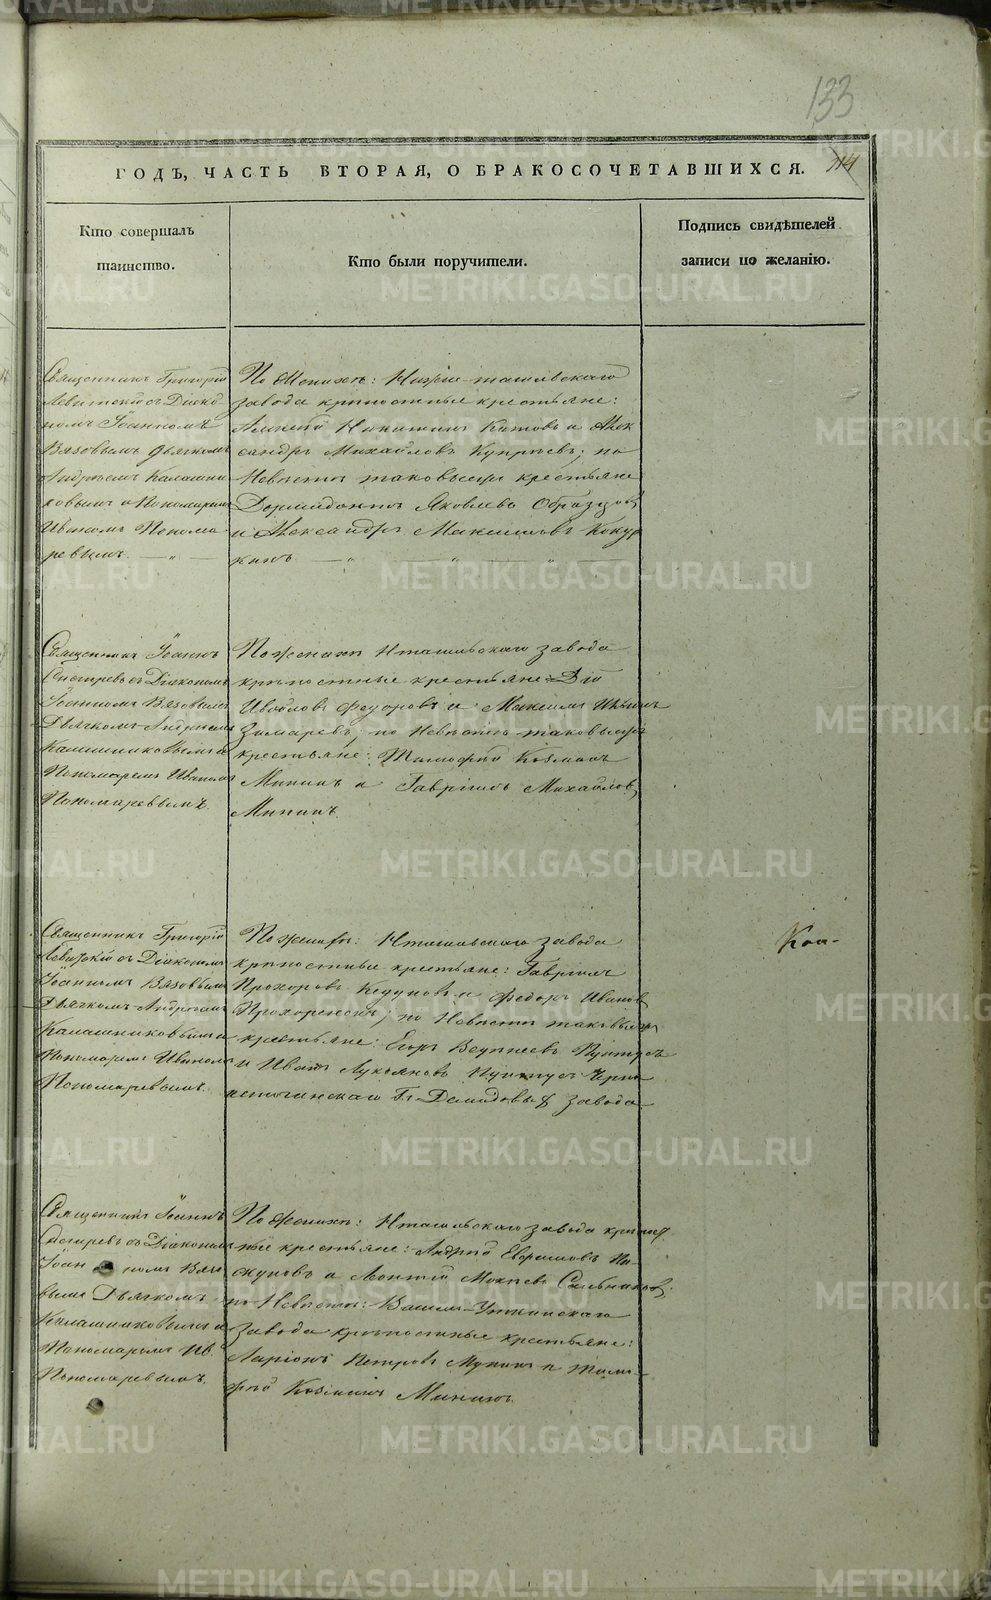 133
ГОДЪ, ЧАСТЬ ВТОРАЯ, О БРАКОСОЧЕТАВШИХСЯ.
114
Кто совершалъ
таинство.
Кто были поручители.
Подпись свидѣтелей
записи по желанію.
Священникъ Григорій
Левитскій съ Діако
номъ Іоанномъ
Вязовымъ дьячкомъ
Андреемъ Калашни
ковымъ и Пономаремъ
Иваномъ Понома
ревымъ.
По Женихѣ: Нижне-тагильскаго
завода крѣпостные крестьяне:
Алексѣй Никитинъ Китовъ и Алек
сандръ Михайловъ Купрѣевъ; по
Невѣстѣ таковыеже крестьяне
Дормидонтъ Яковлевъ Образцовъ
и Александръ Максимовъ Кокур
кинъ.
Священникъ Іоаннъ
съ Діакономъ
Іоанномъ Вязовымъ
Дьячкомъ Андреемъ
Калашниковымъ и
Пономаремъ Иваномъ
Пономаревымъ.
По женихѣ Нтагильскаго завода
крѣпостные крестьяне Дій
Федоровъ и Максимъ
по Невѣстѣ таковыеже
крестьяне: Тимофей Козминъ
Мининъ и Гавріилъ Михайловъ
Мининъ.
Священникъ Григорій
Левитскій съ Діакономъ
Іоанномъ Вязовымъ
Дьячкомъ Андреемъ
Калашниковымъ и
Пономаремъ Иваномъ
Пономаревымъ.
По женихѣ: Нтагильскаго завода
крѣпостные крестьяне: Гавріилъ
Прохоровъ и Федоръ Ивановъ
по Невѣстѣ таковыеже
крестьяне: Егоръ
и Иванъ Лукояновъ Черно
источинскаго Гг. Демидовыхъ завода
Коп-
Священникъ Іоаннъ
съ Діакономъ
Іоанномъ Вязо
вымъ Дьячкомъ
Калашниковымъ и
Пономаремъ Ив.
Пономаревымъ.
По Женихѣ: Нтагильскаго завода крѣпост
ные крестьяне: Андрей Ефремовъ Пи
скуновъ и Леонтій Мокѣевъ
по Невѣстѣ: Висимо-Уткинскаго
завода крѣпостные крестьяне:
Ларіонъ Петровъ и Тимо
фей Козминъ Мининъ.
METRIKI.GASO-URAL.RU